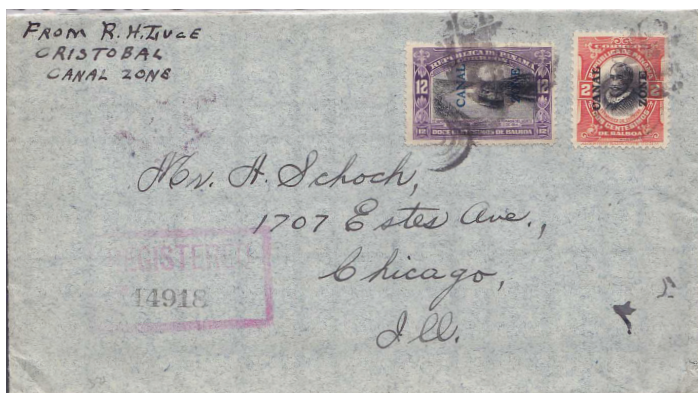 FROM R. H. LUCE
CRISTOBAL
CANAL ZONE
REPUBLICA DE PANAMA
CANAL ZONE
12 12
12 DOCE CENTESIMOS DE BALBOA 12
CORREOS
REPUBLICA DE PANAMA
CANAL ZONE
2 2
DOS CENTESIMOS
DE BALBOA
Mr. A. Schoch,
1707 Estes Ave.,
Chicago,
Ill.
REGISTERED
14918